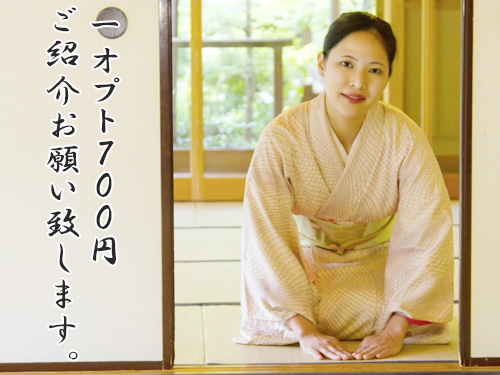 一オプト700円
ご紹介お願い致します。